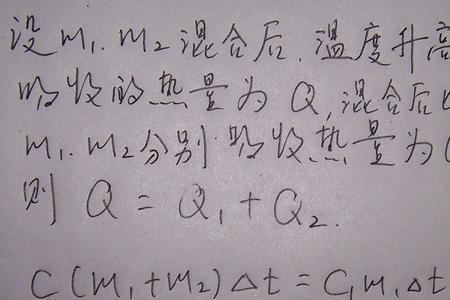 设 m₁. m₂ 混合后. 温度升高
吸收的热量为 Q, 混合后
m₁. m₂ 分别吸收热量为
则 Q = Q₁ + Q₂.
C (m₁ + m₂) Δt = C₁ m₁ Δt